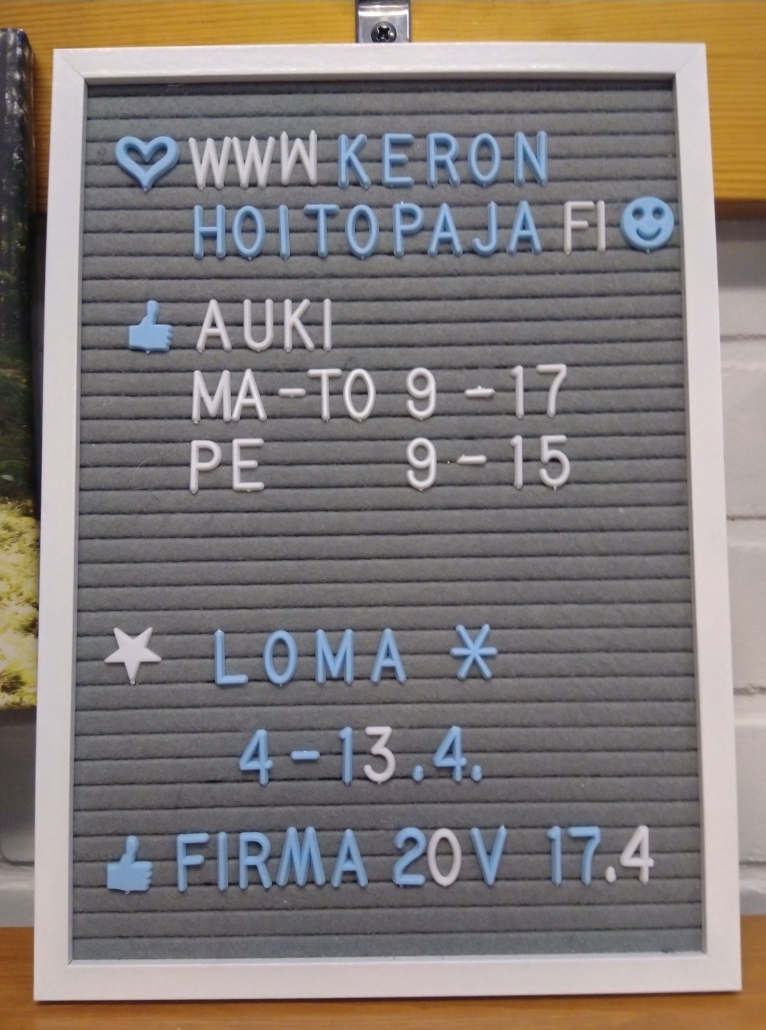 WWW KERON
HOITOPAJA FI
AUKI
MA-TO 9-17
PE 9-15
LOMA *
4-13.4.
FIRMA 20V 17.4